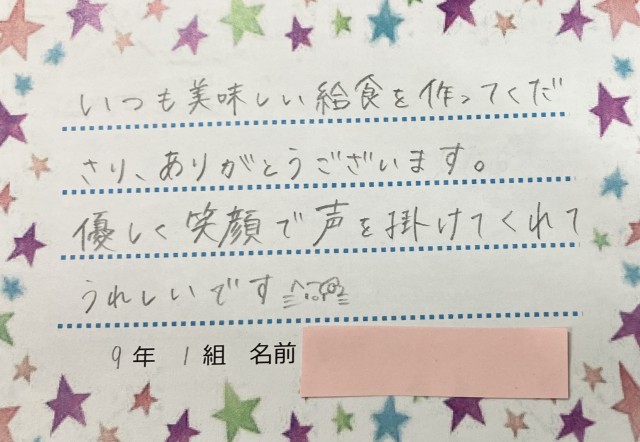 いつも美味しい給食を作ってくだ
さり、ありがとうございます。
優しく笑顔で声を掛けてくれて
うれしいです
9年 1組 名前